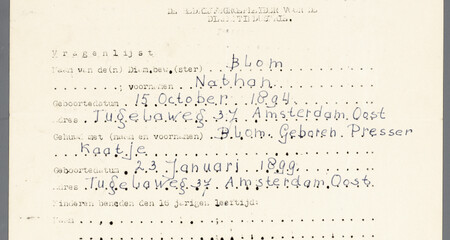 V r a g e n l i j s t
Naam van de(n) Dienbau.(ster) Blom
; voornamen Nathan
Geboortedatum 15 October 1894
Adres Tugelaweg 37 Amsterdam Oost
Gehuwd met (naam en voornamen) Blom Geboren Presser
Kaatje
Geboortedatum 23 Januari 1899
Adres Tugelaweg 37 Amsterdam Oost
Kinderen beneden den 16 jarigen leeftijd:
Naam